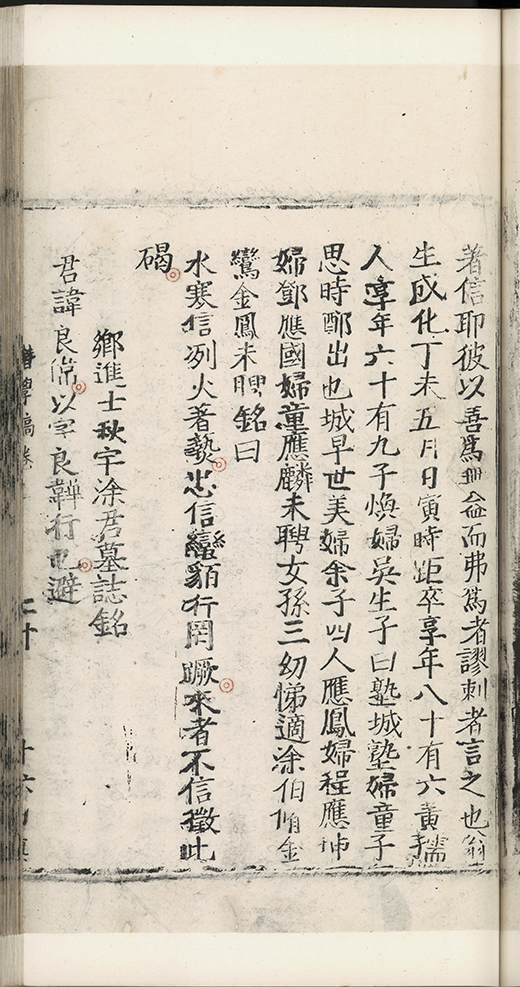 著信耶彼以善為無益而弗為者謬刺者言之也翁
生成化丁未五月日寅時距卒享年八十有六黃孺
人享年六十有九子煥婦吳生子曰塾城塾婦童子
思時鄭出也城早世美婦余子四人應鳳婦程應坤
婦鄧應國婦童應麟未聘女孫三幼悌適涂伯脩金
鸞金鳳未聘銘曰
水寒信冽火著埶忠信蠻貊行罔蹶來者不信徵此
碣
鄉進士秋宇涂君墓誌銘
君諱良儻以字良鞾行也避